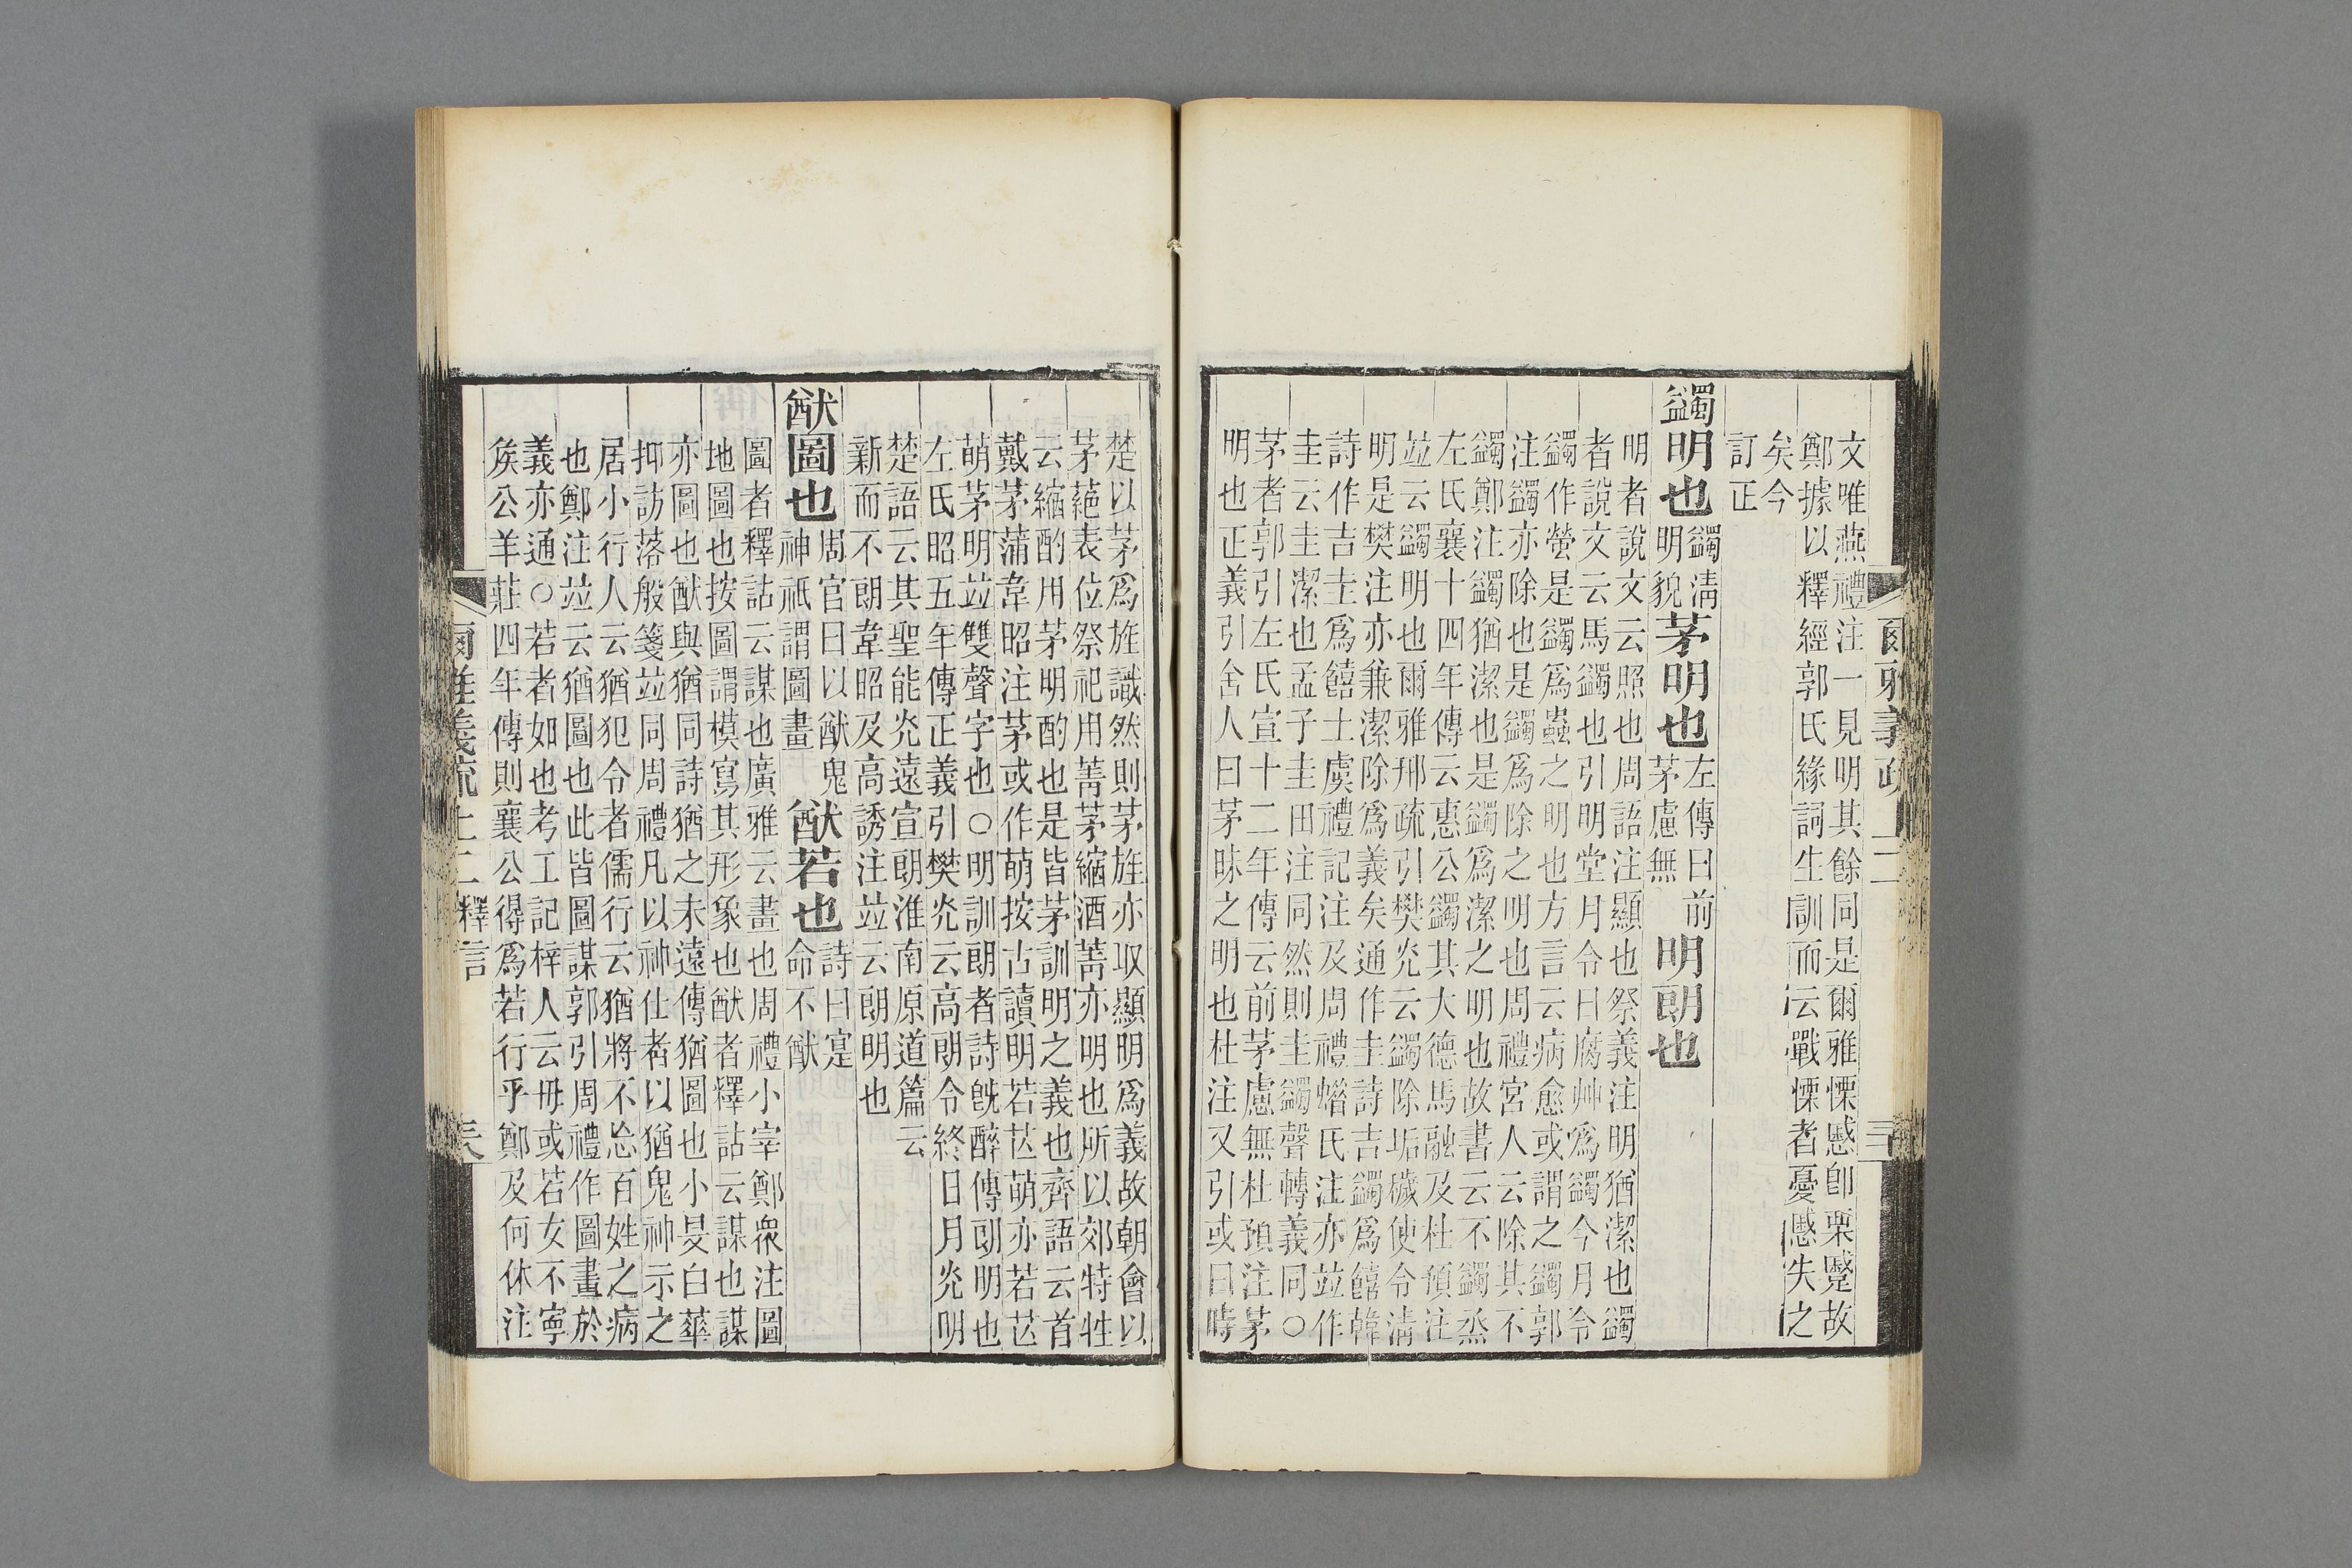 爾雅義疏 上二 三十
文唯燕禮注一見明其餘同是爾雅慄慼卽栗蹙故
鄭據以釋經郭氏緣詞生訓而云戰慄者憂慼失之
矣今
訂正
蠲明也 蠲淸明貌 茅明也 左傳曰前茅慮無 明朗也
明者說文云照也周語注顯也祭義注明猶潔也蠲
者說文云馬蠲也引明堂月令曰腐艸爲蠲今月令
蠲作螢是蠲爲蟲之明也方言云病愈或謂之蠲郭
注蠲亦除也是蠲爲除之明也周禮宮人云除其不
蠲鄭注蠲猶潔也是蠲爲潔之明也故書云不蠲烝
左氏襄十四年傳云惠公蠲其大德馬融及杜預注
竝云蠲明也爾雅邢疏引樊光云蠲除垢穢使令淸
明是樊注亦兼潔除爲義矣通作圭詩吉蠲爲饎韓
詩作吉圭爲饎士虞禮記注及周禮蜡氏注亦竝作
圭云圭潔也孟子圭田注同然則圭蠲聲轉義同○
茅者郭引左氏宣十二年傳云前茅慮無杜預注茅
明也正義引舍人曰茅昧之明也杜注又引或曰時
楚以茅爲旌識然則茅旌亦取顯明爲義故朝會以
茅蕝表位祭祀用菁茅縮酒菁亦明也所以郊特牲
云縮酌用茅明酌也是皆茅訓明之義也齊語云首
戴茅蒲韋昭注茅或作萌按古讀明若芒萌亦若芒
萌茅明竝雙聲字也○明訓朗者詩旣醉傳朗明也
左氏昭五年傳正義引樊光云高朗令終日月光明
楚語云其聖能光遠宣朗淮南原道篇云
新而不朗韋昭及高誘注竝云朗明也
猷圖也 周官曰以猷鬼神祇謂圖畫 猷若也 詩曰寔命不猷
圖者釋詁云謀也廣雅云畫也周禮小宰鄭衆注圖
地圖也按圖謂模寫其形象也猷者釋詁云謀也謀
亦圖也猷與猶同詩猶之未遠傳猶圖也小旻白華
抑訪落般箋竝同周禮凡以神仕者以猶鬼神示之
居小行人云猶犯令者儒行云猶將不忘百姓之病
也鄭注竝云猶圖也此皆圖謀郭引周禮作圖畫於
義亦通○若者如也考工記梓人云毋或若女不寧
矦公羊莊四年傳則襄公得爲若行乎鄭及何休注
爾雅義疏 上二 釋言